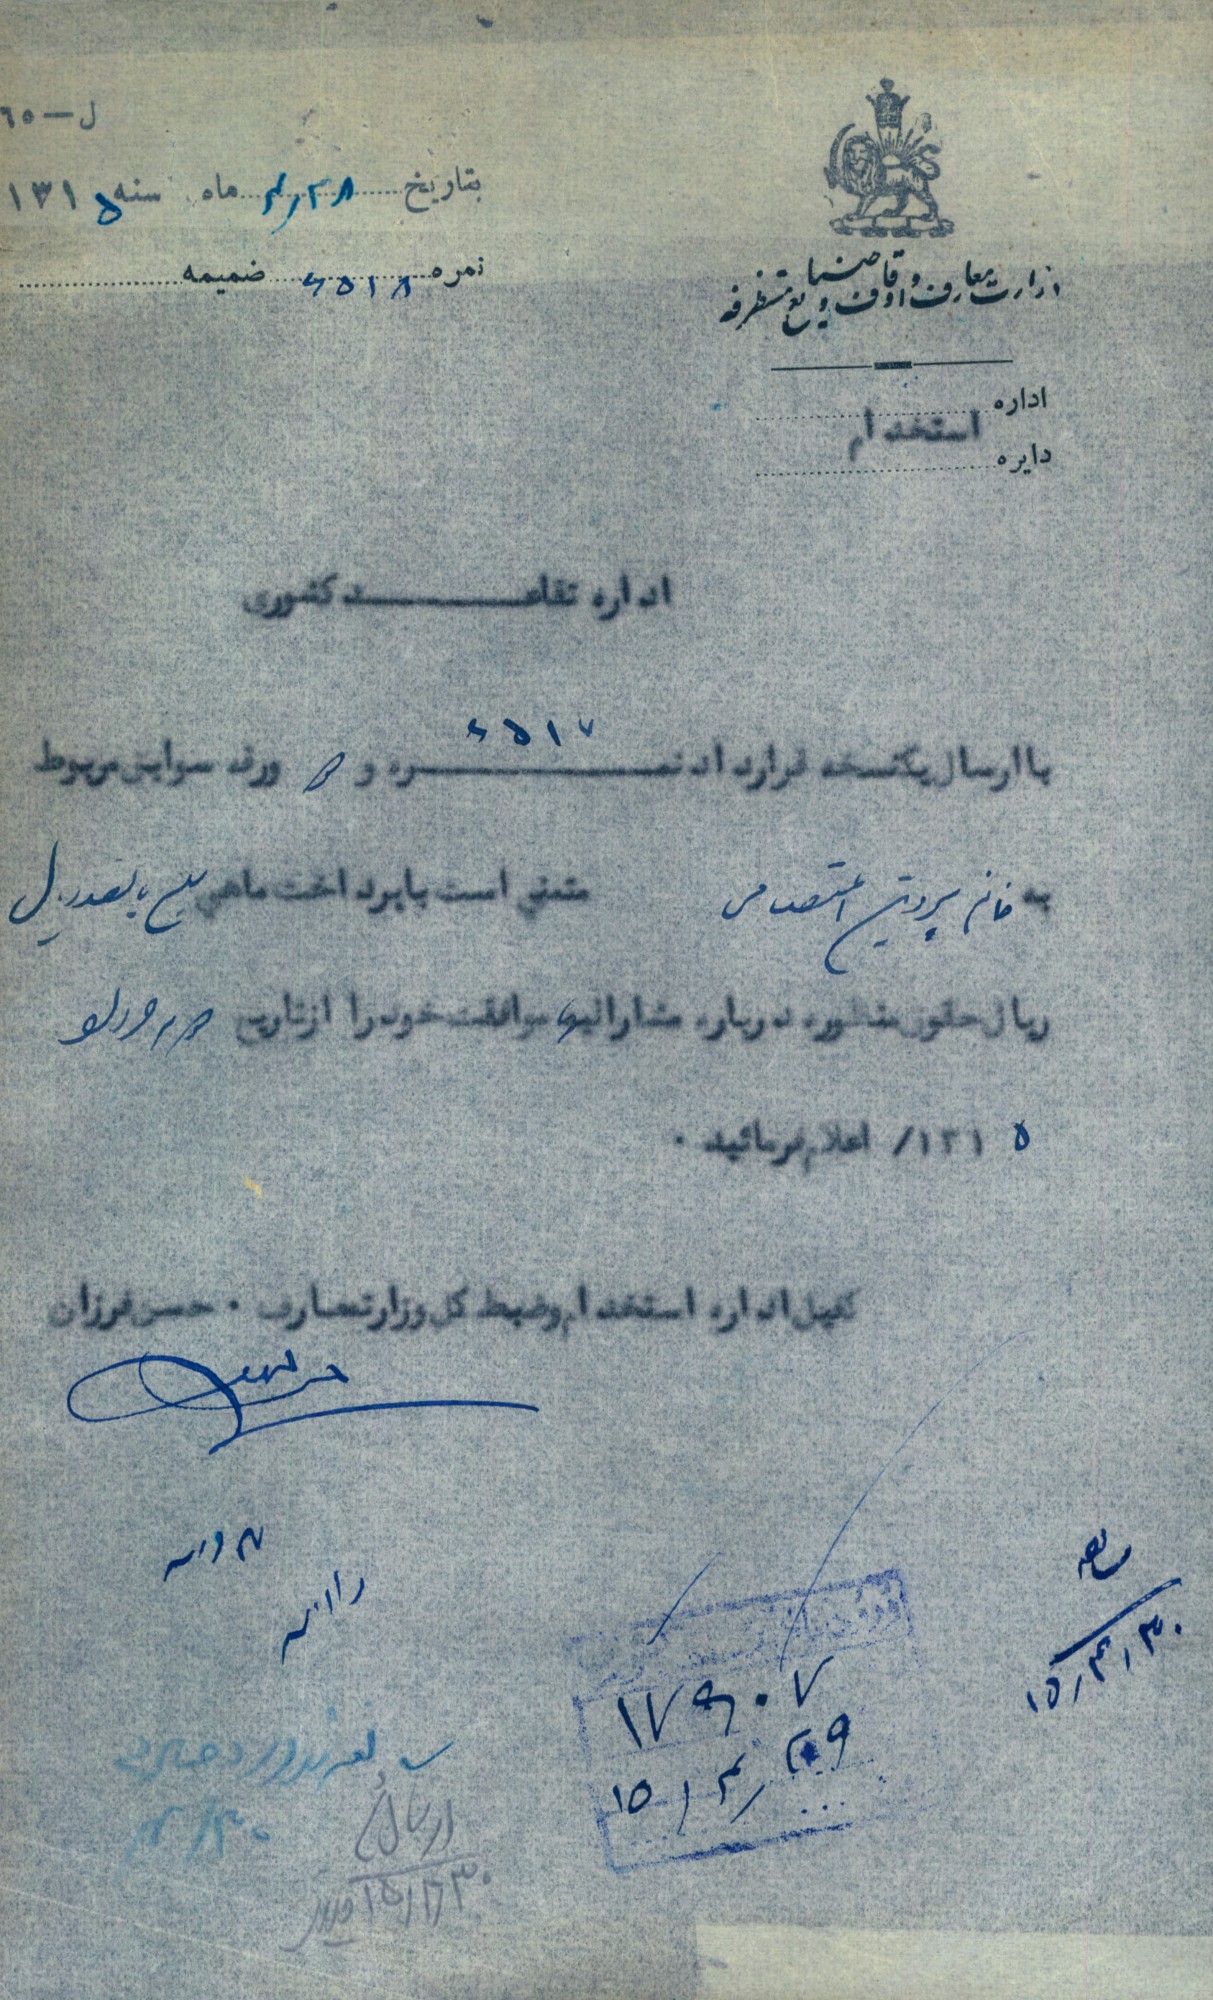 ل — ٦٥
بتاریخ ۴/۲۸ ماه سنه ۱۳۱۵
نمره ۶۵۱۸ ضمیمه
وزارت معارف و اوقاف و صنایع مستظرفه
اداره
استخدام
دایره
اداره تقاعد کشوری
۶۵۱۷
با ارسال یکنسخه قرارداد نمره و ورقه سوابق مربوط
به خانم پروین اعتصامی متمنی است با پرداخت ماهی پانصد ریال
ریال حقوق منظوره درباره مشارالیها موافقت خود را از تاریخ
۱۳۱۵/ اعلام فرمائید .
کفیل اداره استخدام و ضبط کل وزارت معارف . حسن فرزان
۱۵/۴/۳۰
۱۷۹۰۷
۱۵/۴/۲۹
۴/۳۰